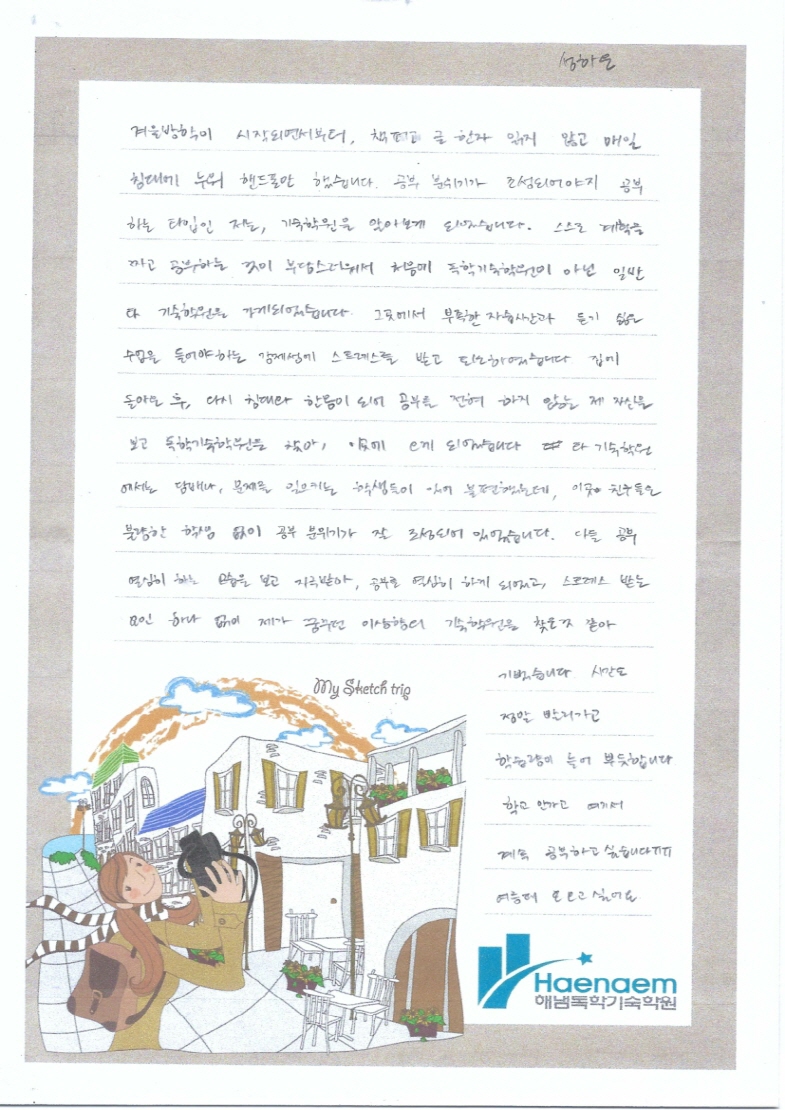 성하은
겨울방학이 시작되면서부터, 책펴고 글 한자 읽지 않고 매일
침대에 누워 핸드폰만 했습니다. 공부 분위기가 조성되어야지 공부
하는 타입인 저는, 기숙학원을 알아보게 되었습니다. 스스로 계획을
짜고 공부하는 것이 부담스러워서 처음에 독학기숙학원이 아닌 일반
타 기숙학원을 가게되었습니다. 그곳에서 부족한 자습시간과 듣기 싫은
수업을 들어야하는 강제성에 스트레스를 받고 퇴소하였습니다 집에
돌아온 후, 다시 침대와 한몸이 되어 공부를 전혀 하지 않는 제 자신을
보고 독학기숙학원을 찾아, 이곳에 오게 되었습니다 타 기숙학원
에서는 담배나, 문제를 일으키는 학생들이 있어 불편했는데, 이곳은 친구들은
불량한 학생 없이 공부 분위기가 잘 조성되어 있었습니다. 다들 공부
열심히 하는 모습을 보고 자극받아, 공부를 열심히 하게 되었고, 스트레스 받는
요인 하나 없이 제가 꿈꾸던 이상향의 기숙학원을 찾은것 같아
기뻤습니다 시간도
정말 빨리가고
학습량이 늘어 뿌듯합니다
학교 안가고 여기서
계속 공부하고 싶습니다ㅠㅠ
여름에 또 오고 싶어요
My Sketch trip
Haenaem
해냄독학기숙학원